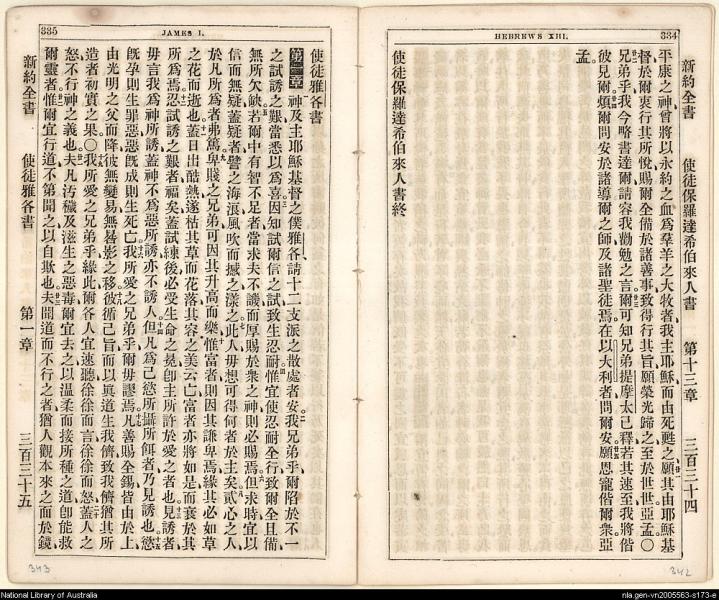 HEBREWS XIII.
334
新約全書 使徒保羅達希伯來人書 第十三章 三百三十四
平康之神曾將以永約之血爲羣羊之大牧者我主耶穌而由死甦之願其由耶穌基
督於爾衷行其所悅賜爾全備於諸善事致得行其旨願榮光歸之至於世世亞孟〇
兄弟乎我今略書達爾請容我勸勉之言爾可知兄弟提摩太已釋若其速至我將偕
彼見爾煩爾問安於諸導爾之師及諸聖徒焉在以大利者問爾安願恩寵偕爾衆亞
孟
使徒保羅達希伯來人書終
342
335
JAMES I.
使徒雅各書
第一章 神及主耶穌基督之僕雅各請十二支派之散處者安我兄弟乎爾陷於不一
之試誘之艱當悉以爲喜因知試爾信之試致生忍耐惟宜使忍耐全行致爾全且備
無所欠缺若爾中有智不足者當求夫不譏而厚賜於衆之神則必賜焉但求時宜以
信而無疑蓋疑者譬之海浪風吹而撼之漾之此人毋想可得何者於主矣貳心之人
於凡所爲者弗篤卑賤之兄弟可因其升高而樂惟富者則因其謙卑焉緣其必如草
之花而逝也蓋日出酷熱遂枯其草而花落其容之美云亡富者亦將如是而衰於其
所爲焉忍試誘之艱者福矣蓋試練後必受生命之冕卽主所許於愛之者也見誘者
毋言我爲神所誘蓋神不爲惡所誘亦不誘人但凡爲己慾所攝所餌者乃見誘也慾
既孕則生罪惡惡既成則生死亡我所愛之兄弟乎爾毋謬焉凡善賜全錫皆由於上
由光明之父而降彼無變易無晷影之移彼循己旨而以眞道生我儕致我儕猶其所
造者初實之果〇我所愛之兄弟乎緣此爾各人宜速聽徐徐而言徐徐而怒蓋人之
怒不行神之義也夫凡污穢及滋生之惡毒爾宜去之以溫柔而接所種之道卽能救
爾靈者惟爾宜行道不第聞之以自欺也夫聞道而不行之者猶人觀本來之面於鏡
新約全書 使徒雅各書 第一章 三百三十五
343
National Library of Australia
nla.gen-vn2005563-s173-e